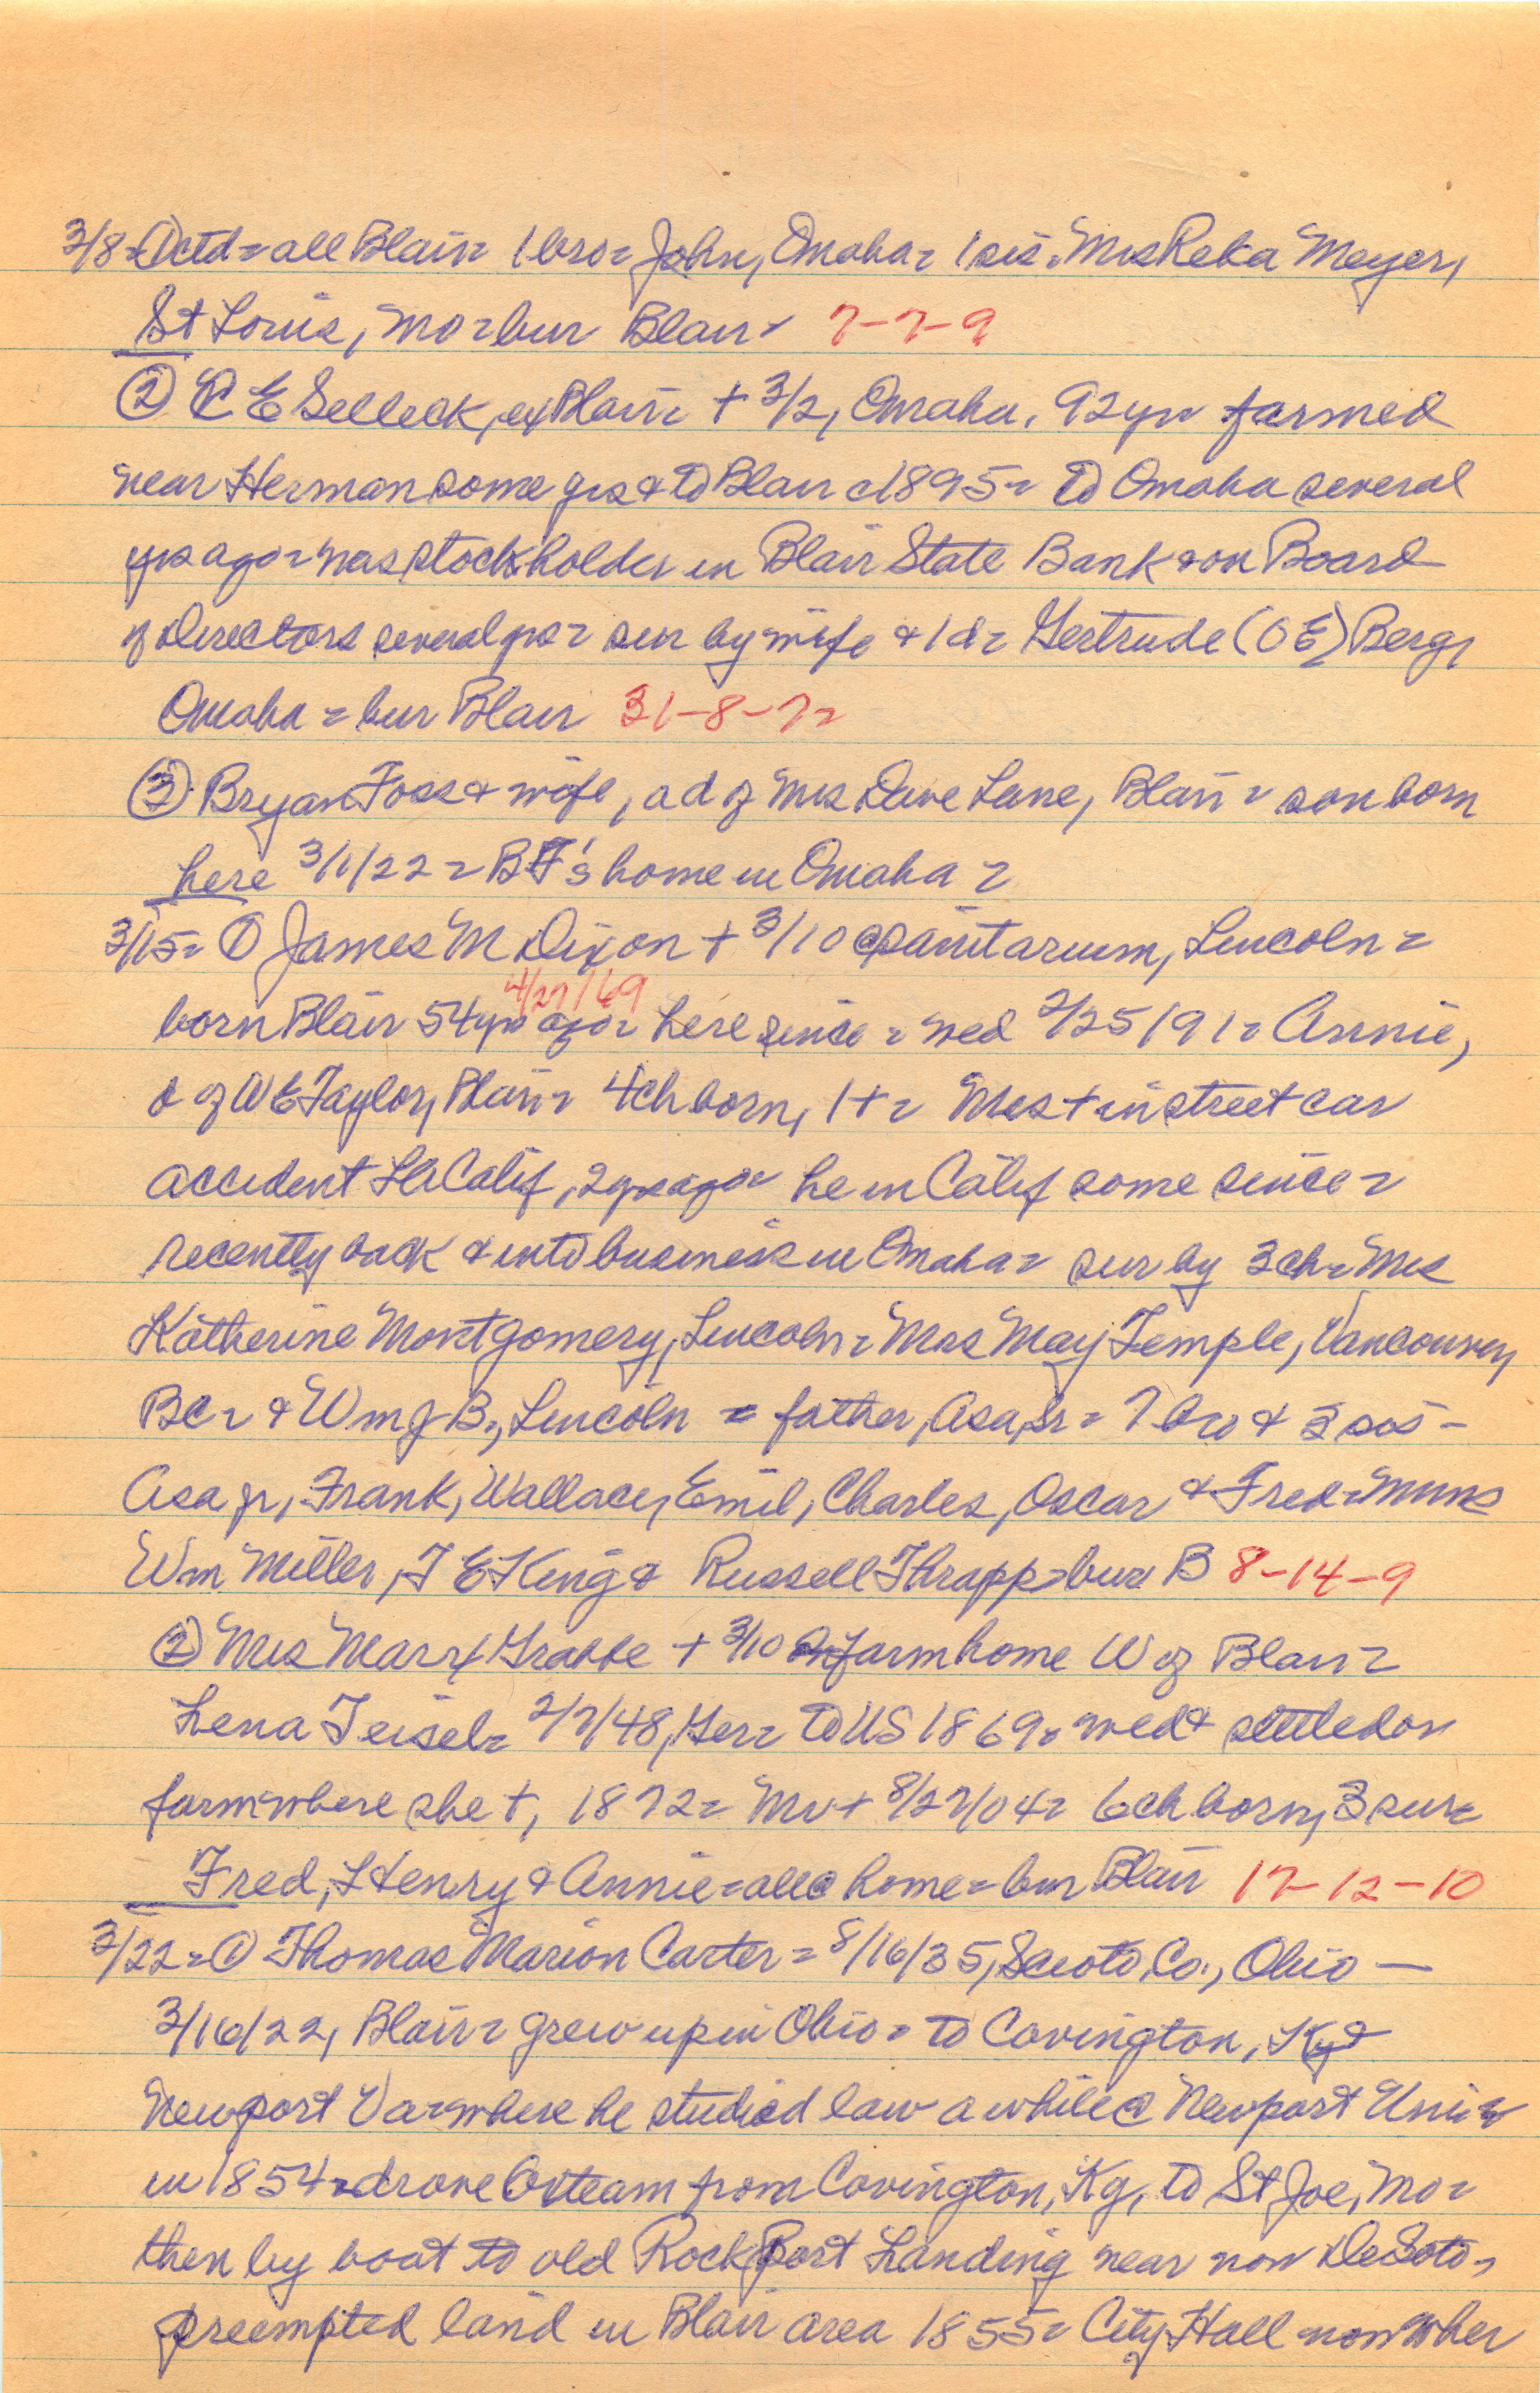 3/8= ①ctd= all Blair= 1 bro= John, Omaha= 1 sis= Mrs Reka Meyer,
St Louis, Mo= bur Blair= 7-7-9
② C E Selleck, ex Blair= + 3/2, Omaha, 92 yr= farmed
near Herman some yrs & to Blair c1895= to Omaha several
yrs ago= was stockholder in Blair State Bank & on Board
of Directors several yrs= sur by wife & 1 d= Gertrude (O E) Berg,
Omaha= bur Blair 31-8-7=
③ Bryan Foss & wife, a d of Mrs Dave Lane, Blair= son born
here 3/1/22= BF's home in Omaha=
3/15= ① James M Dixon + 3/10 @ sanitarium, Lincoln=
4/27/69
born Blair 54 yrs ago= here since= wed 2/25/91= Annie,
d of W E Taylor, Blair= 4 ch born, 1+= Mrs + in street car
accident LA Calif, 2 yrs ago= he in Calif some since=
recently back & into business in Omaha= sur by 3 ch= Mrs
Katherine Montgomery, Lincoln= Mrs May Temple, Vancouver,
BC= & Wm J B, Lincoln = father, Asa, Sr= 7 bro & 3 sis-
Asa jr, Frank, Wallace, Emil, Charles, Oscar, & Fred= Mmes
Wm Miller, J E King & Russell Thrapp= bur B 8-14-9
② Mrs Marx Grabbe + 3/10 farm home W of Blair=
Lena Teisel= 2/7/48, Ger= to US 1869= wed & settled on
farm where she +, 1872= Mr + 8/27/04= 6 ch born, 3 sur=
Fred, Henry & Annie= all @ home= bur Blair 17-12-10
3/22= ① Thomas Marion Carter= 8/16/35, Scioto, Co., Ohio —
3/16/22, Blair= grew up in Ohio= to Covington, Ky &
Newport Va= where he studied law a while @ Newport Uni=
in 1854= drove ox team from Covington, Ky, to St Joe, Mo=
then by boat to old Rock Port Landing near now DeSoto=
preempted land in Blair area 1855= City Hall now wher